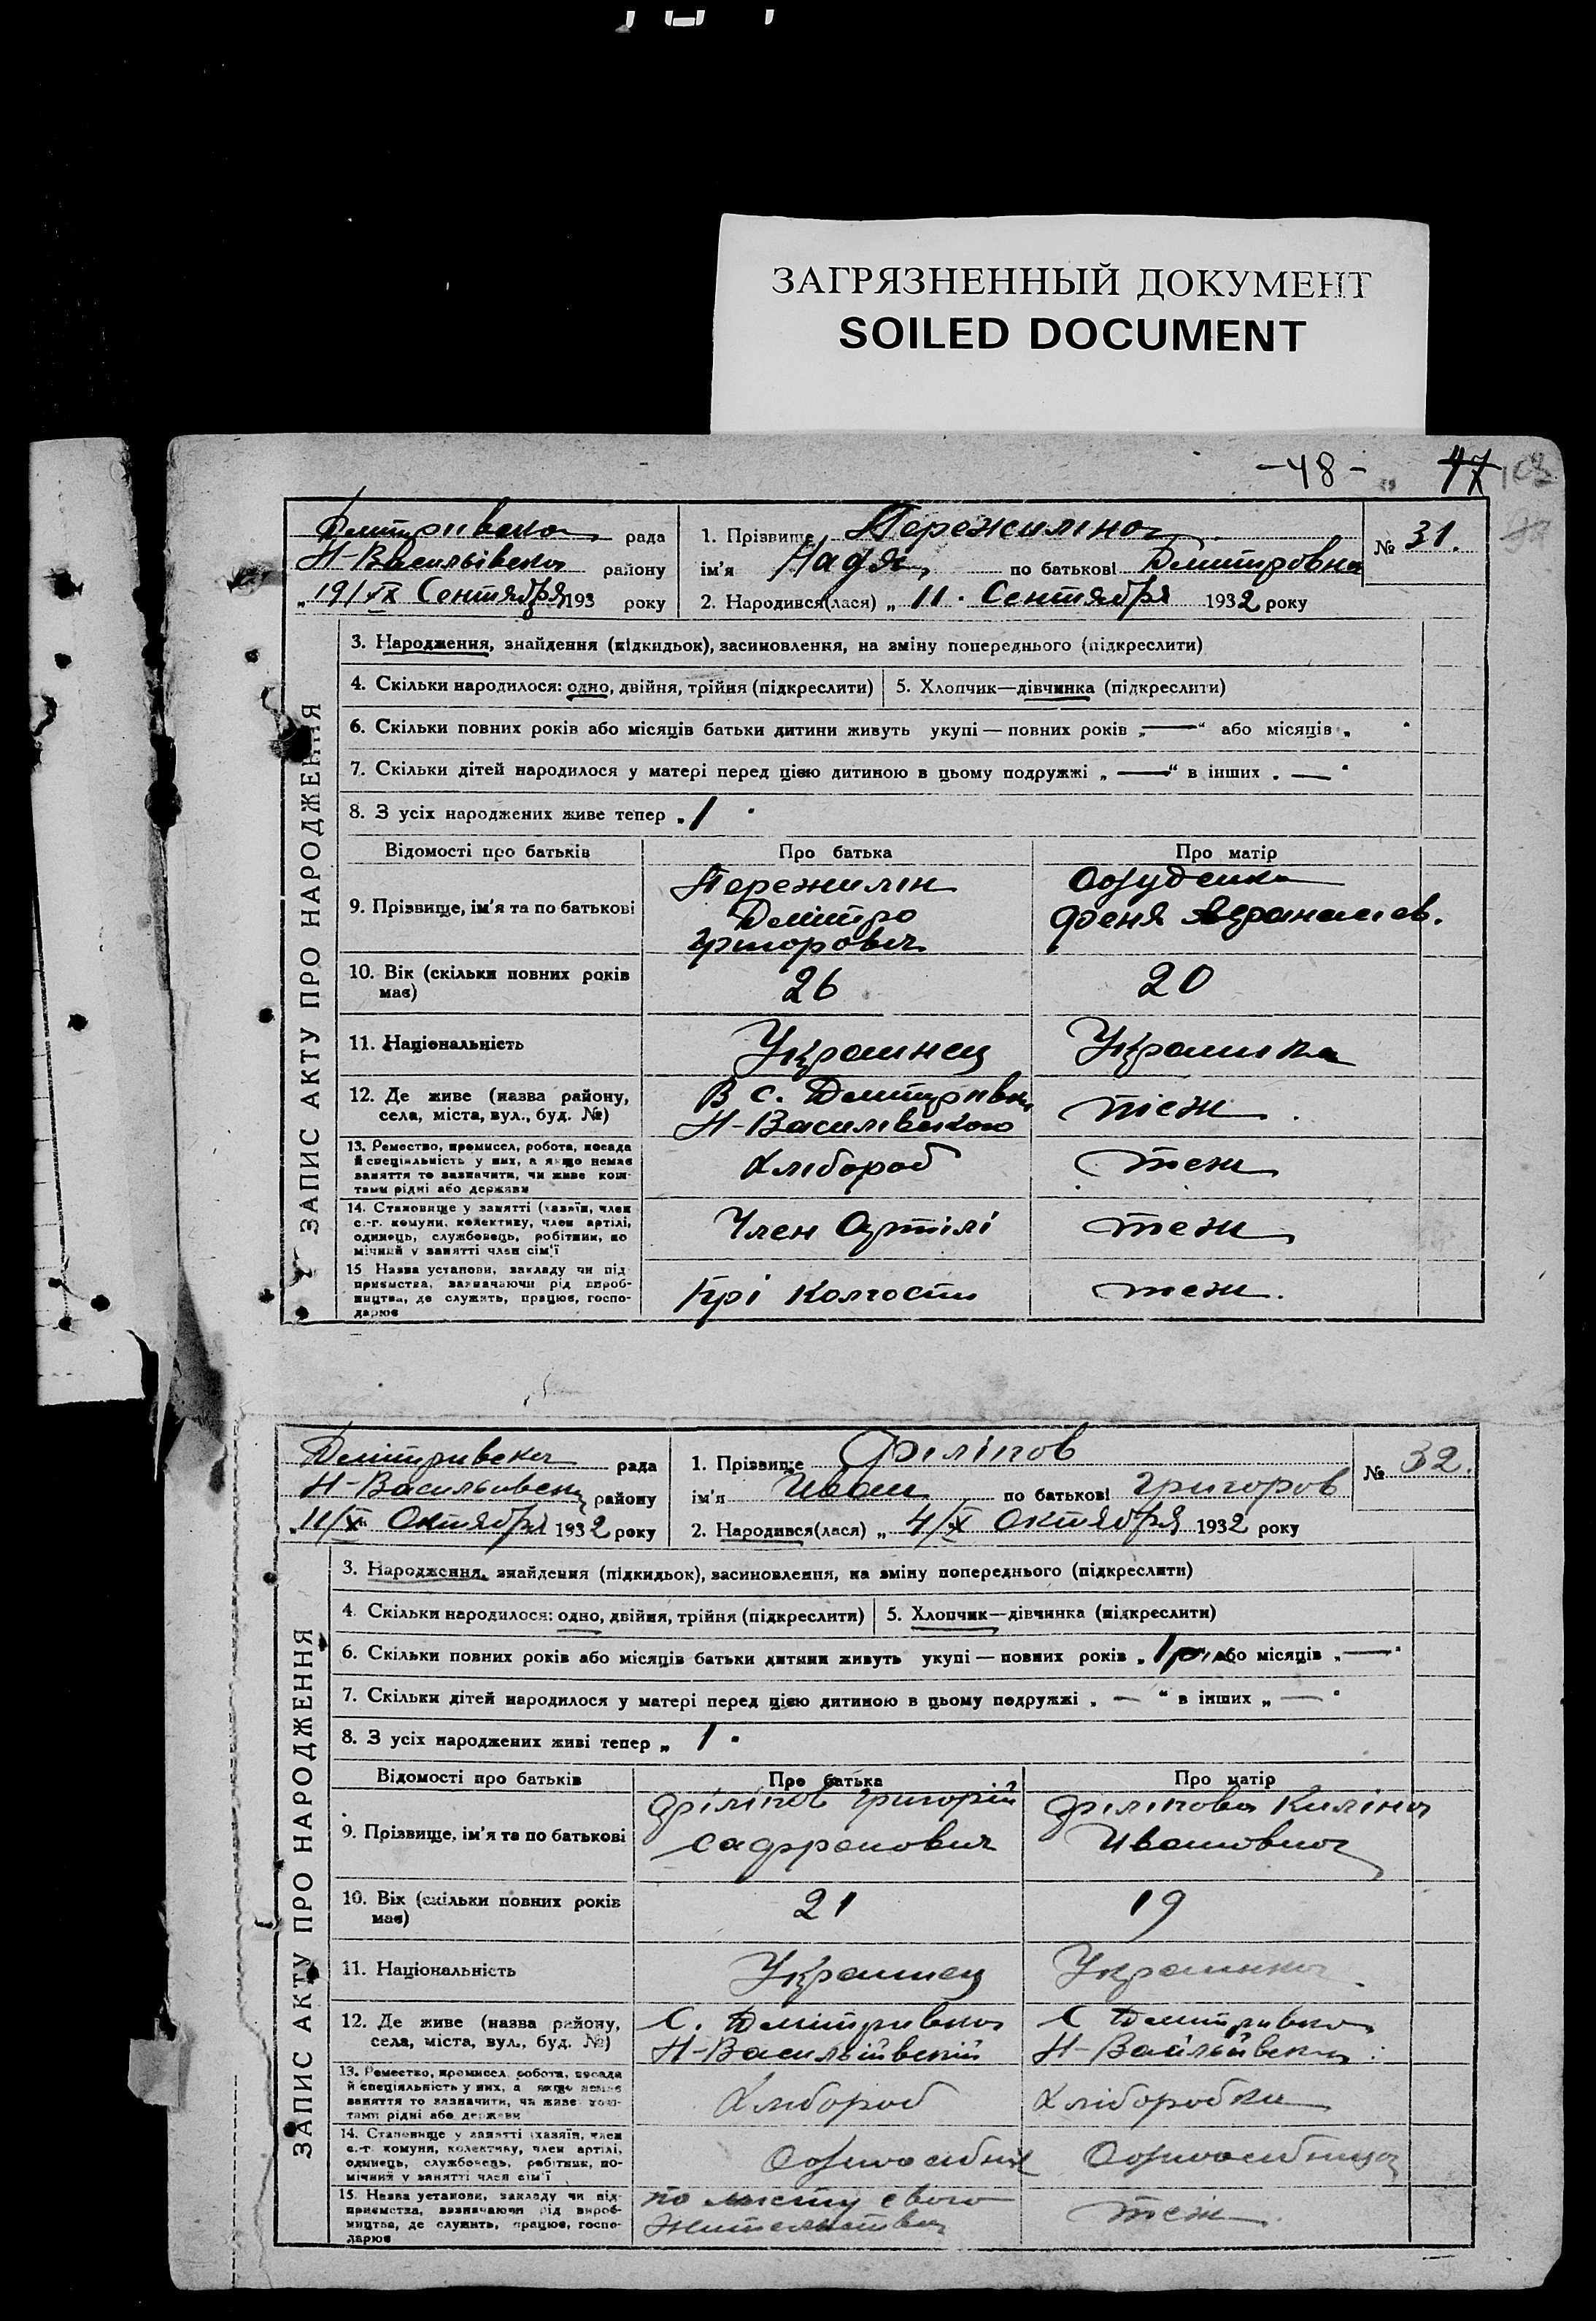 ЗАГРЯЗНЕННЫЙ ДОКУМЕНТ
SOILED DOCUMENT
-48- 47
ЗАПИС АКТУ ПРО НАРОДЖЕННЯ
Дмитриівска рада
Н-Васильівска району
„19/IX Сентября 193 року
1. Прізвище Пережиліна
№ 31.
ім'я Надя, по батькові Дмитровна
2. Народився(лася) „11. Сентября 1932 року
3. Народження, знайдення (підкидьок), засиновлення, на зміну попереднього (підкреслити)
4. Скільки народилося: одно, двійня, трійня (підкреслити) 5. Хлопчик—дівчинка (підкреслити)
6. Скільки повних років або місяців батьки дитини живуть укупі — повних років „—“ або місяців „ “
7. Скільки дітей народилося у матері перед цією дитиною в цьому подружжі „—“ в інших „—“
8. З усіх народжених живе тепер „1
Відомості про батьків Про батька Про матір
9. Прізвище, ім'я та по батькові
Пережилін
Дмітро
Григорович
Феня Афанасиев.
10. Вік (скільки повних років має) 26 20
11. Національність Украинец Украинка
12. Де живе (назва району, села, міста, вул., буд. №)
В с. Дмитрівки
Н-Василівского
теж
13. Ремество, промисел, робота, посада й спеціяльність у них, а якщо немає заняття то зазначити, чи живе коштами рідні або держави
Хлібороб теж
14. Становище у занятті (хазяїн, член с.-г. комуни, колективу, член артілі, одинець, службовець, робітник, помічний у занятті член сім'ї
Член Артілі теж
15 Назва установи, закладу чи підприємства, зазначаючи рід виробництва, де служить, працює, господарює
Прі Колгоспи теж.
ЗАПИС АКТУ ПРО НАРОДЖЕННЯ
Дмітривска рада
Н-Васильивск району
„11/X Октября 1932 року
1. Прізвище Філіпов
№ 32.
ім'я Иван по батькові Григоров
2. Народився(лася) „4/X Октября 1932 року
3. Народження, знайдення (підкидьок), засиновлення, на зміну попереднього (підкреслити)
4. Скільки народилося: одно, двійня, трійня (підкреслити) 5. Хлопчик—дівчинка (підкреслити)
6. Скільки повних років або місяців батьки дитини живуть укупі — повних років „1 або місяців „—“
7. Скільки дітей народилося у матері перед цією дитиною в цьому подружжі „—“ в інших „—“
8. З усіх народжених живі тепер „ 1
Відомості про батьків Про батька Про матір
9. Прізвище, ім'я та по батькові
Філіпов Григорій
Сафронович
Філіпова Киліна
Ивановна
10. Вік (скільки повних років має) 21 19
11. Національність Украинец Украинка
12. Де живе (назва району, села, міста, вул., буд. №)
С. Дмітривка
Н-Васильївскій
С Дмитривка
Н-Васільївск
13. Ремество, промисел, робота, посада й спеціяльність у них, а якщо немає заняття то зазначити, чи живе коштами рідні або держави
Хлібороб Хліборобка
14. Становище у занятті (хазяїн, член с.-г. комуни, колективу, член артілі, одинець, службовець, робітник, помічний у занятті член сім'ї
Одноосібник Одноосібница
15. Назва установи, закладу чи підприємства, зазначаючи рід виробництва, де служить, працює, господарює
по мисту свого
Жительства
теж